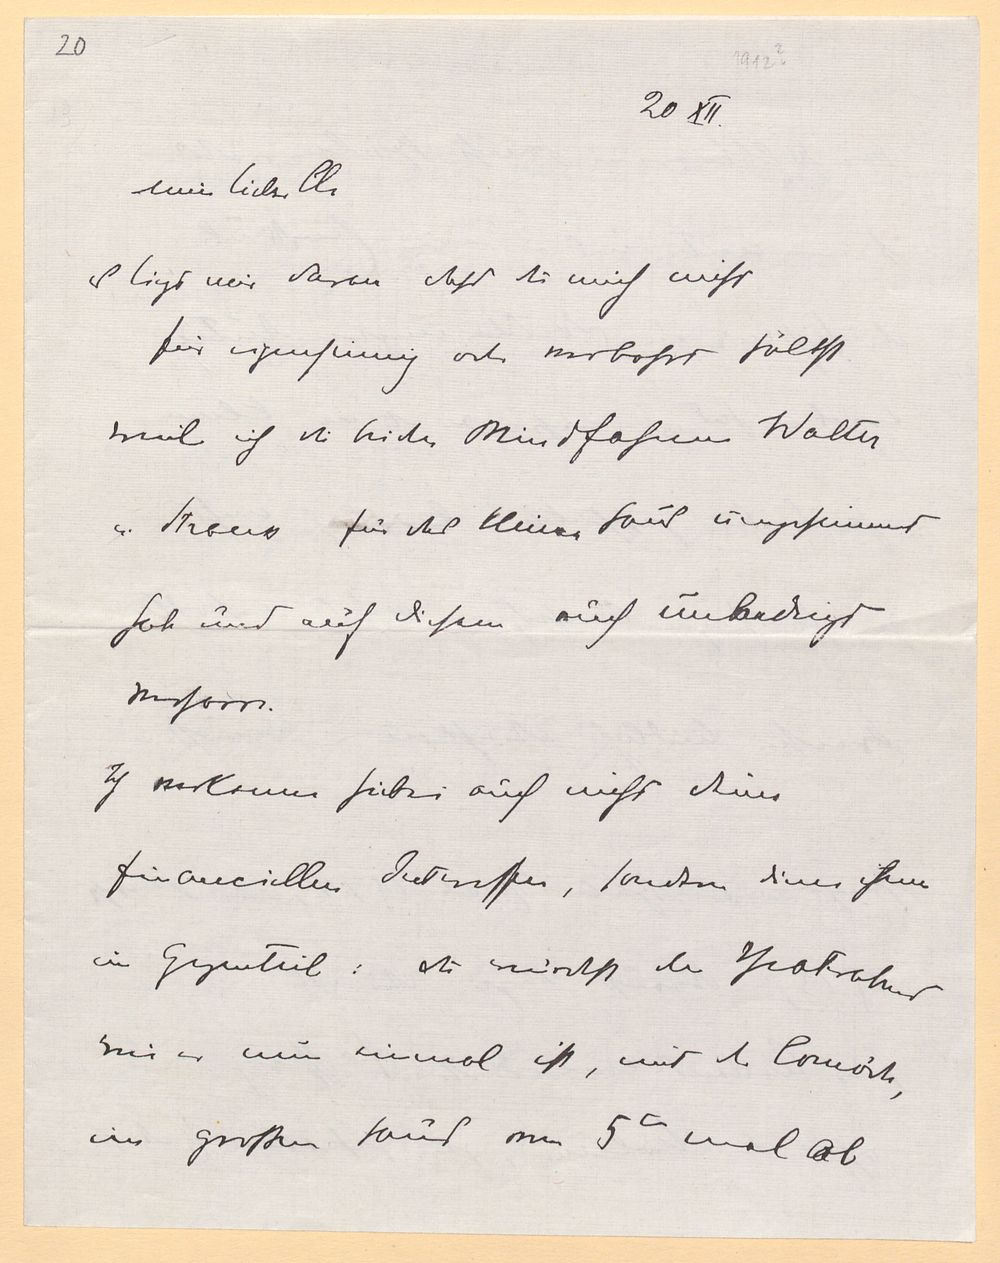 20
1912?
20 XII.
mein lieber Cle
es liegt mir daran dass du mich nicht
für eigensinnig oder verbohrt hältst
weil ich die beiden Windfahnen Walter
u. Strauss für das kleine Haus umgestimmt
habe und auf diesem auch unbedingt
verharre.
Ich verkenne hiebei auch nicht deine
financiellen Interessen, sondern diene ihnen
im Gegenteil: du würdest den Theaterabend
wie er nun einmal ist, mit der Comödie,
im großen Haus vom 5ten mal ab